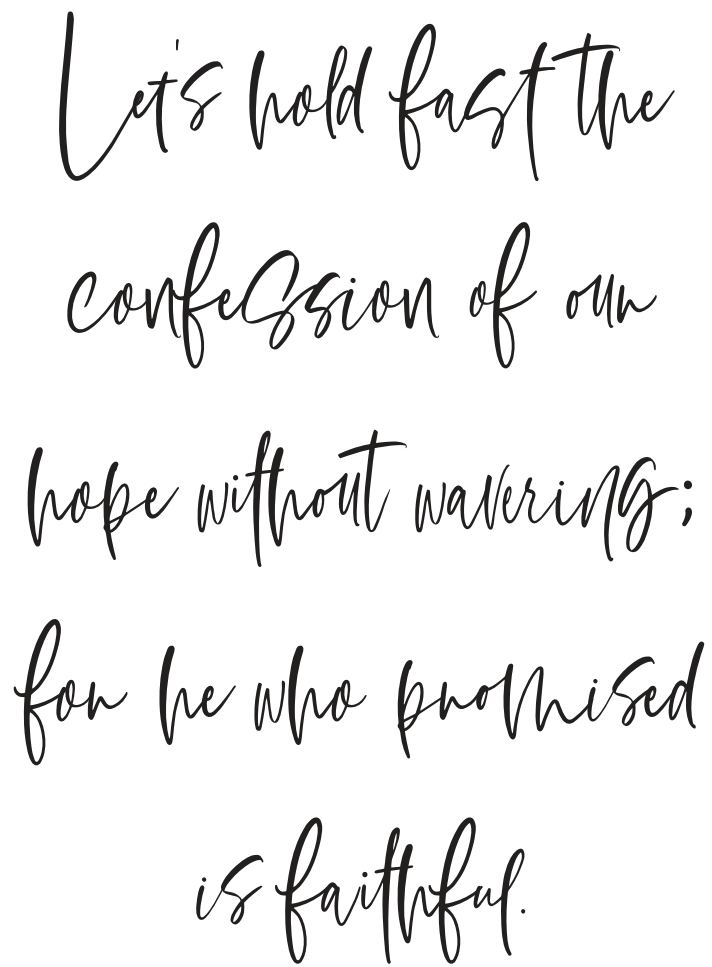 Let's hold fast the
confession of our
hope without wavering;
for he who promised
is faithful.